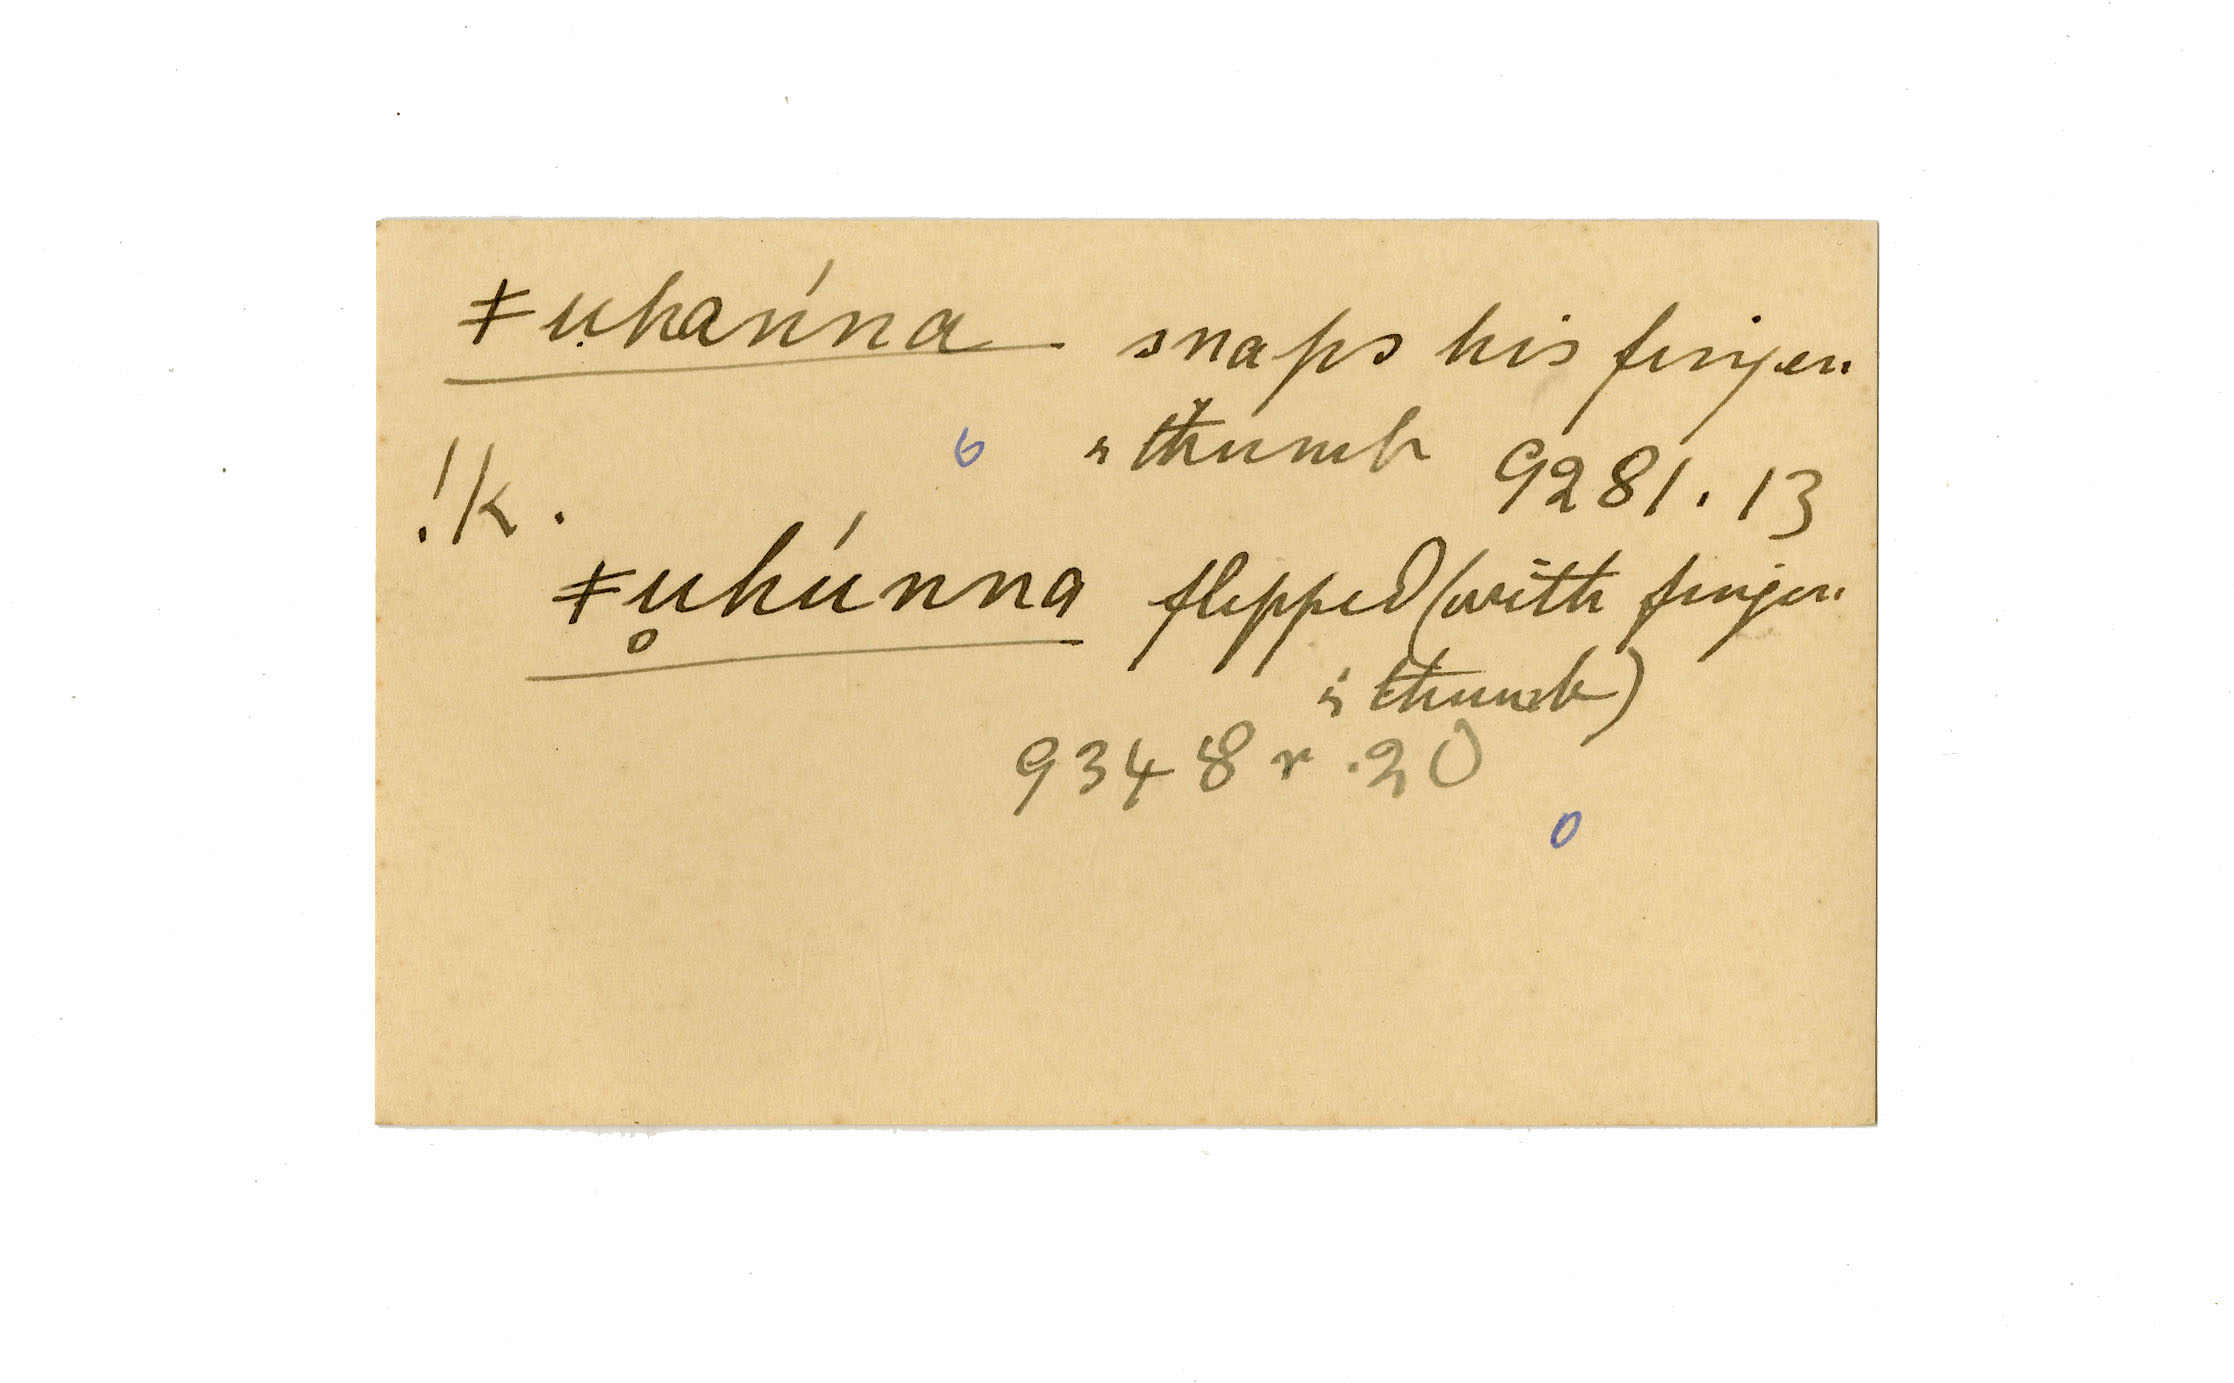 ǂụhánna snaps his finger
& thumb 9281.13
!k.
ǂu̥húnna flipped (with finger
& thumb)
9348 r .20